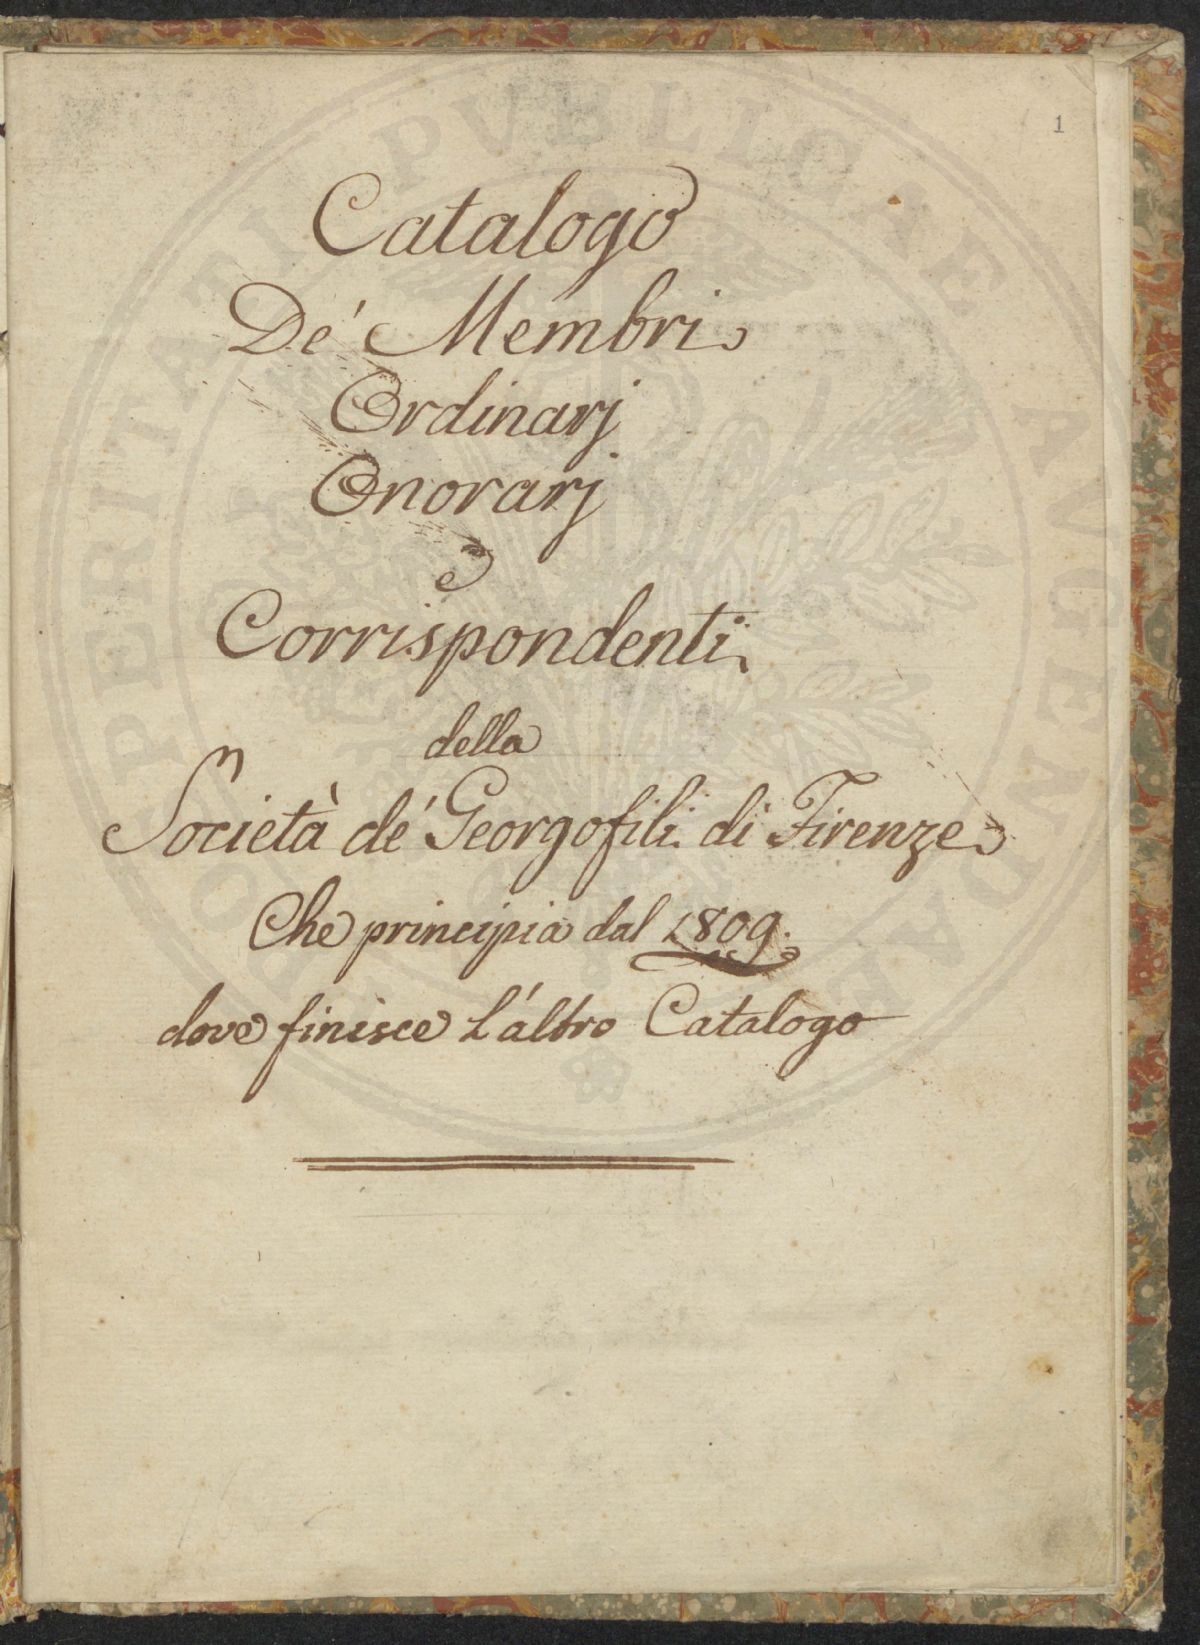 1
Catalogo
De' Membri
Ordinarj
Onorarj
e
Corrispondenti
della
Società de' Georgofili di Firenze
Che principia dal 1809.
dove finisce L'altro Catalogo
PROSPERITATI PUBLICAE AUGENDAE